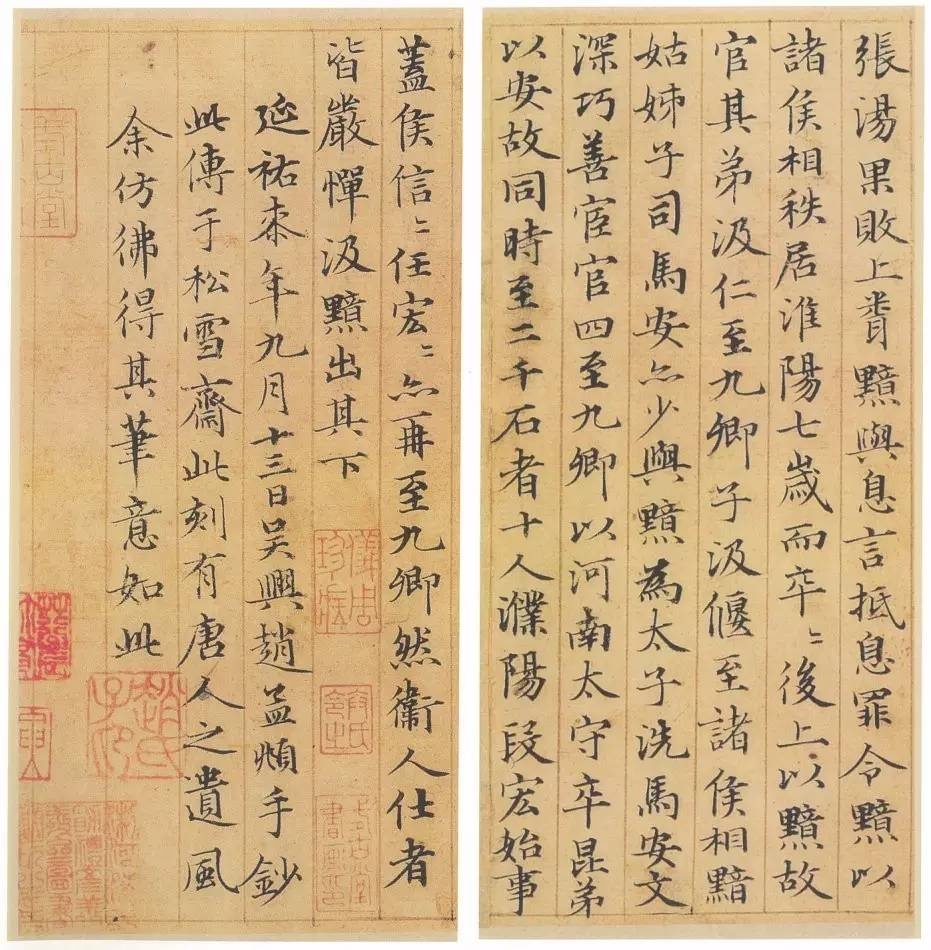 張湯果敗上聞黯與息言抵息罪令黯以
諸侯相秩居淮陽七歲而卒〻後上以黯故
官其弟汲仁至九卿子汲偃至諸侯相黯
姑姊子司馬安亦少與黯為太子洗馬安文
深巧善宦官四至九卿以河南太守卒昆弟
以安故同時至二千石者十人濮陽段宏始事
蓋侯信〻任宏〻亦再至九卿然衛人仕者
皆嚴憚汲黯出其下
延祐柒年九月十三日吳興趙孟頫手鈔
此傳于松雪齋此刻有唐人之遺風
余仿彿得其筆意如此
儀周珍藏
式古堂書畫印
趙氏子昂